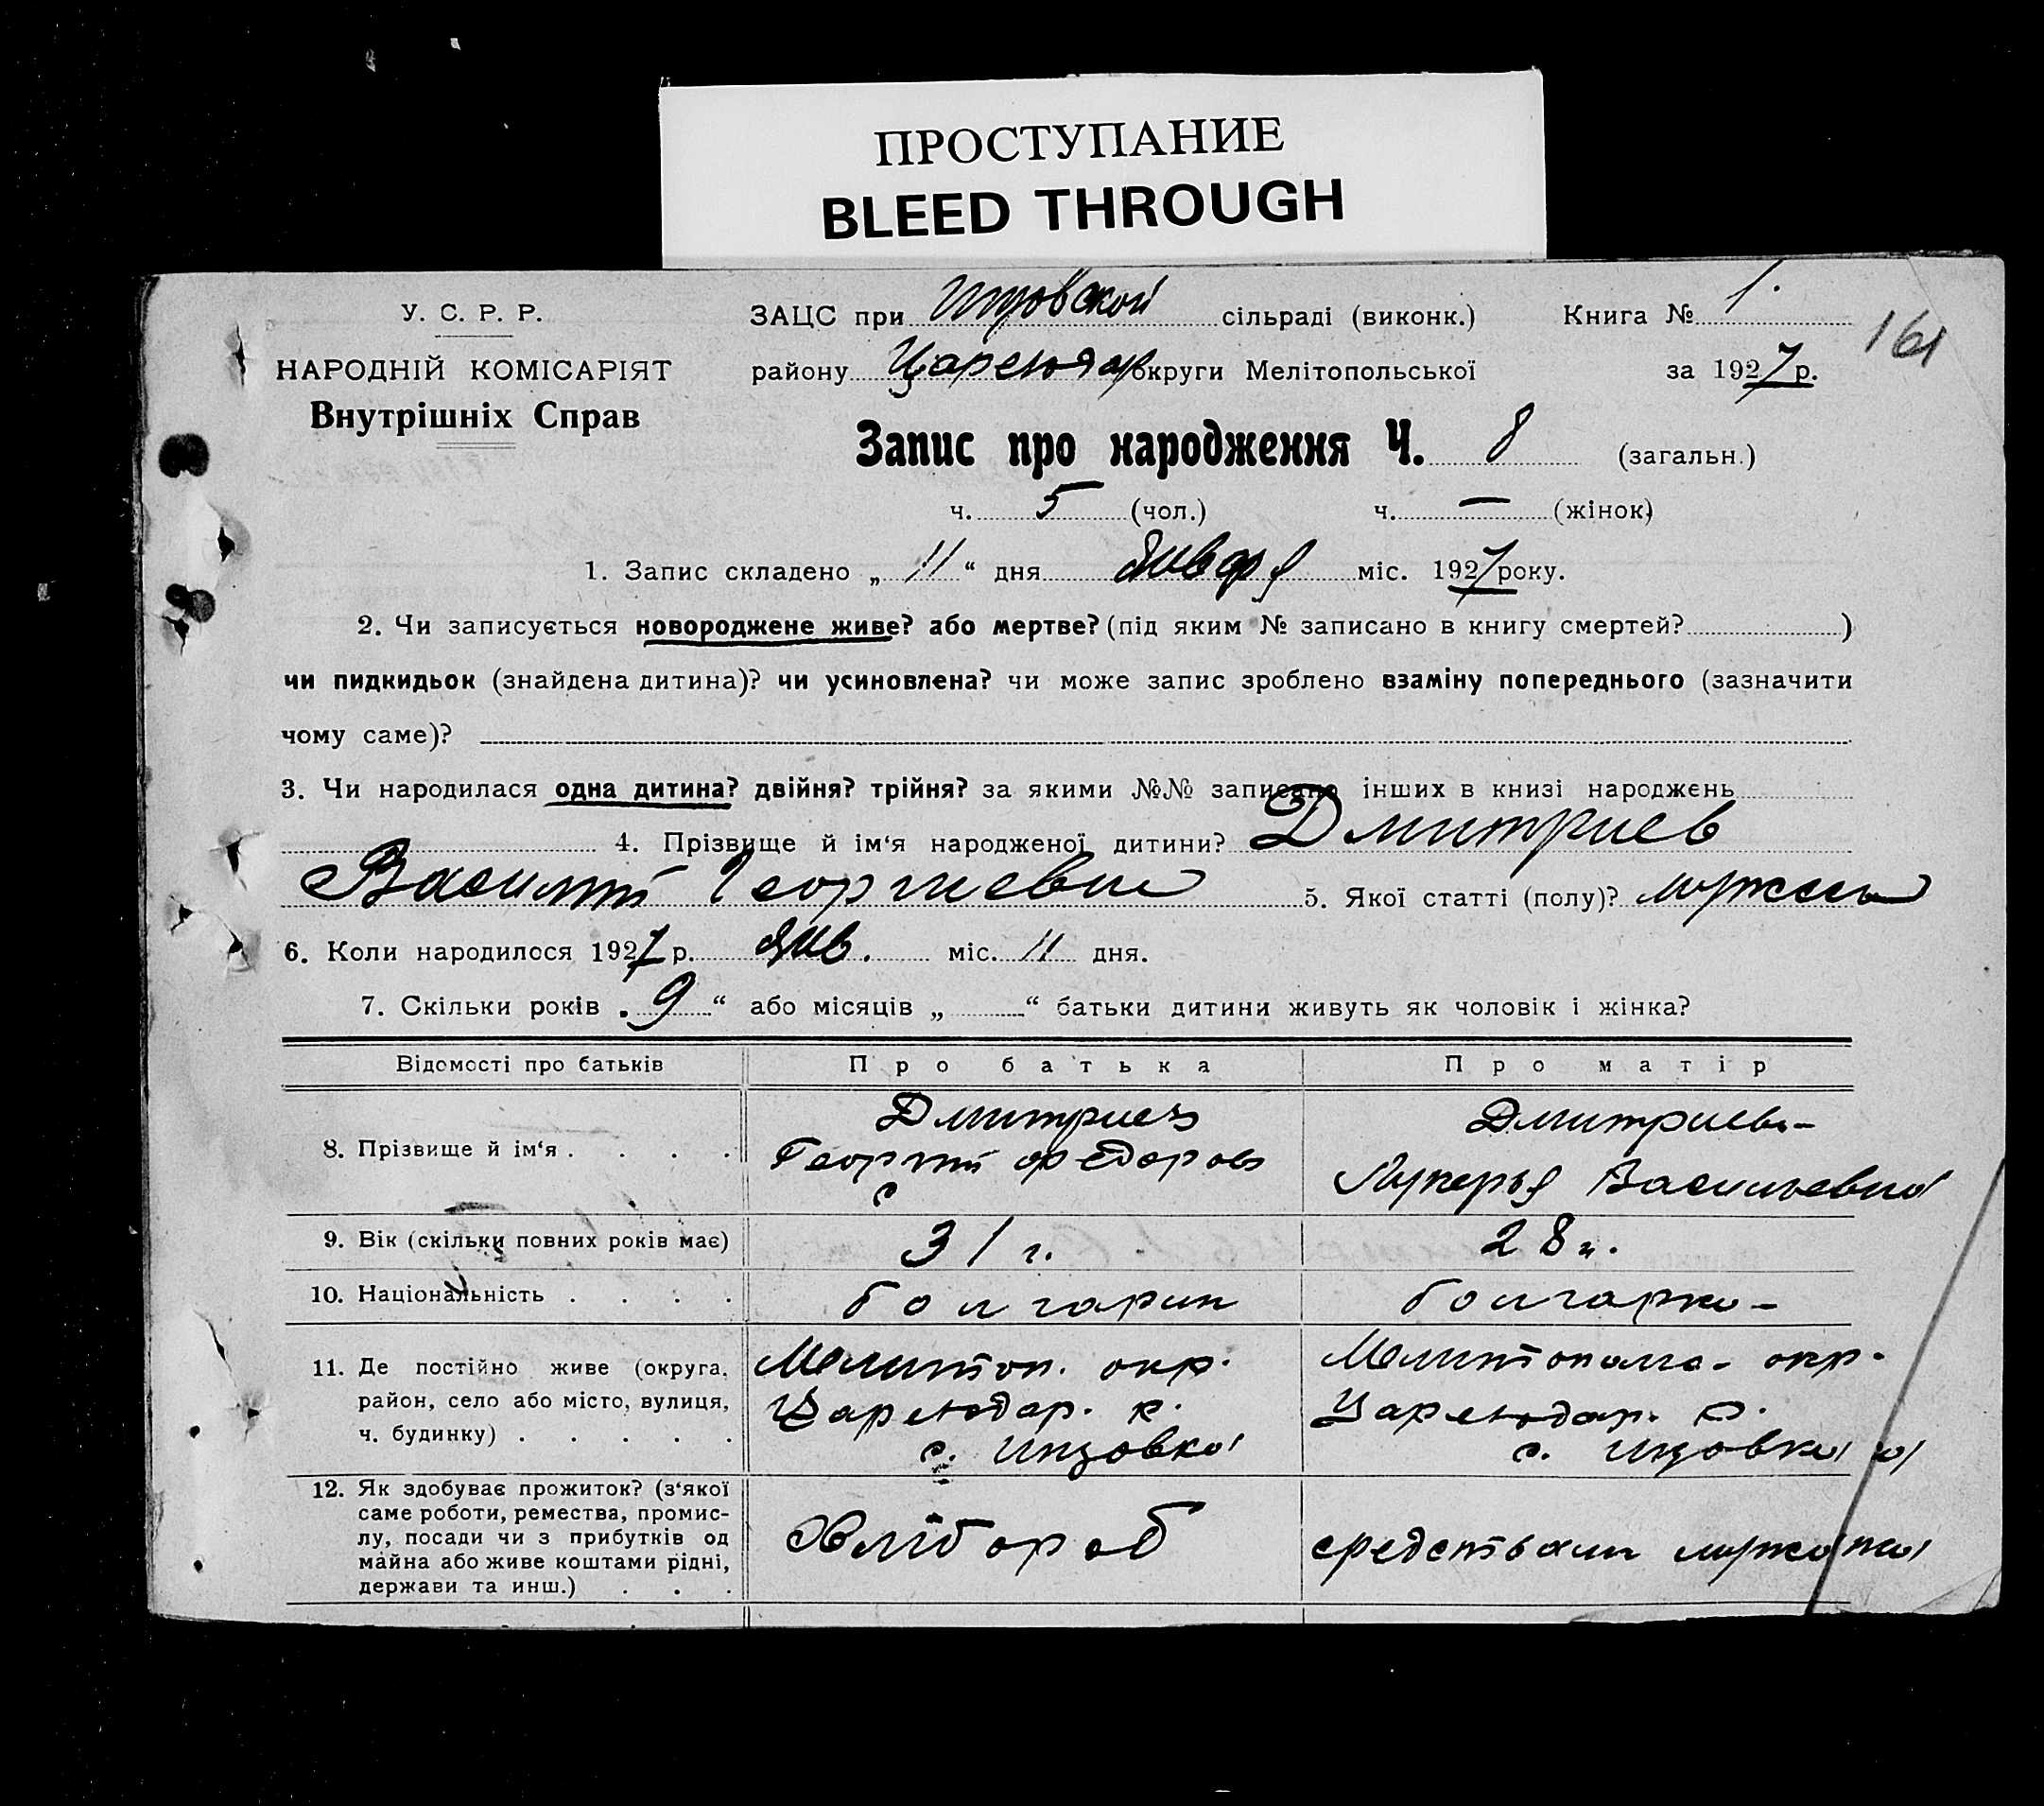 ПРОСТУПАНИЕ
BLEED THROUGH
У. С. Р. Р.
НАРОДНІЙ КОМІСАРІЯТ
Внутрішніх Справ
ЗАЦС при Инзовской сільраді (виконк.) Книга № 1.
161
району Цареводар округи Мелітопольської за 1927 р.
Запис про народження Ч. 8 (загальн.)
ч. 5 (чол.) ч. — (жінок)
1. Запис складено „ 11 “ дня Января міс. 1927 року.
2. Чи записується новороджене живе? або мертве? (під яким № записано в книгу смертей? )
чи пидкидьок (знайдена дитина)? чи усиновлена? чи може запис зроблено взаміну попереднього (зазначити
чому саме)?
3. Чи народилася одна дитина? двійня? трійня? за якими №№ записано інших в книзі народжень
4. Прізвище й ім‘я народженої дитини? Дмитриев
Василий Георгиевич 5. Якої статті (полу)? мужск
6. Коли народилося 1927 р. Янв. міс. 11 дня.
7. Скільки років „ 9 “ або місяців „ “ батьки дитини живуть як чоловік і жінка?
Відомості про батьків Про батька Про матір
8. Прізвище й ім‘я . . . . Дмитриев Дмитриева
Георгий Федоров Лукерья Васильевна
9. Вік (скільки повних років має) 31 г. 28 г.
10. Національність . . . . болгарин болгарка
11. Де постійно живе (округа, район, село або місто, вулиця, ч. будинку) . . . . .
Мелитоп. окр. Мелитополь. окр.
Цареводар. р. Цареводар. р.
с. Инзовка с. Инзовка
12. Як здобуває прожиток? (з‘якої
саме роботи, ремества, промис-
лу, посади чи з прибутків од
майна або живе коштами рідні,
держави та инш.) . . .
Хлібороб средствами мужа